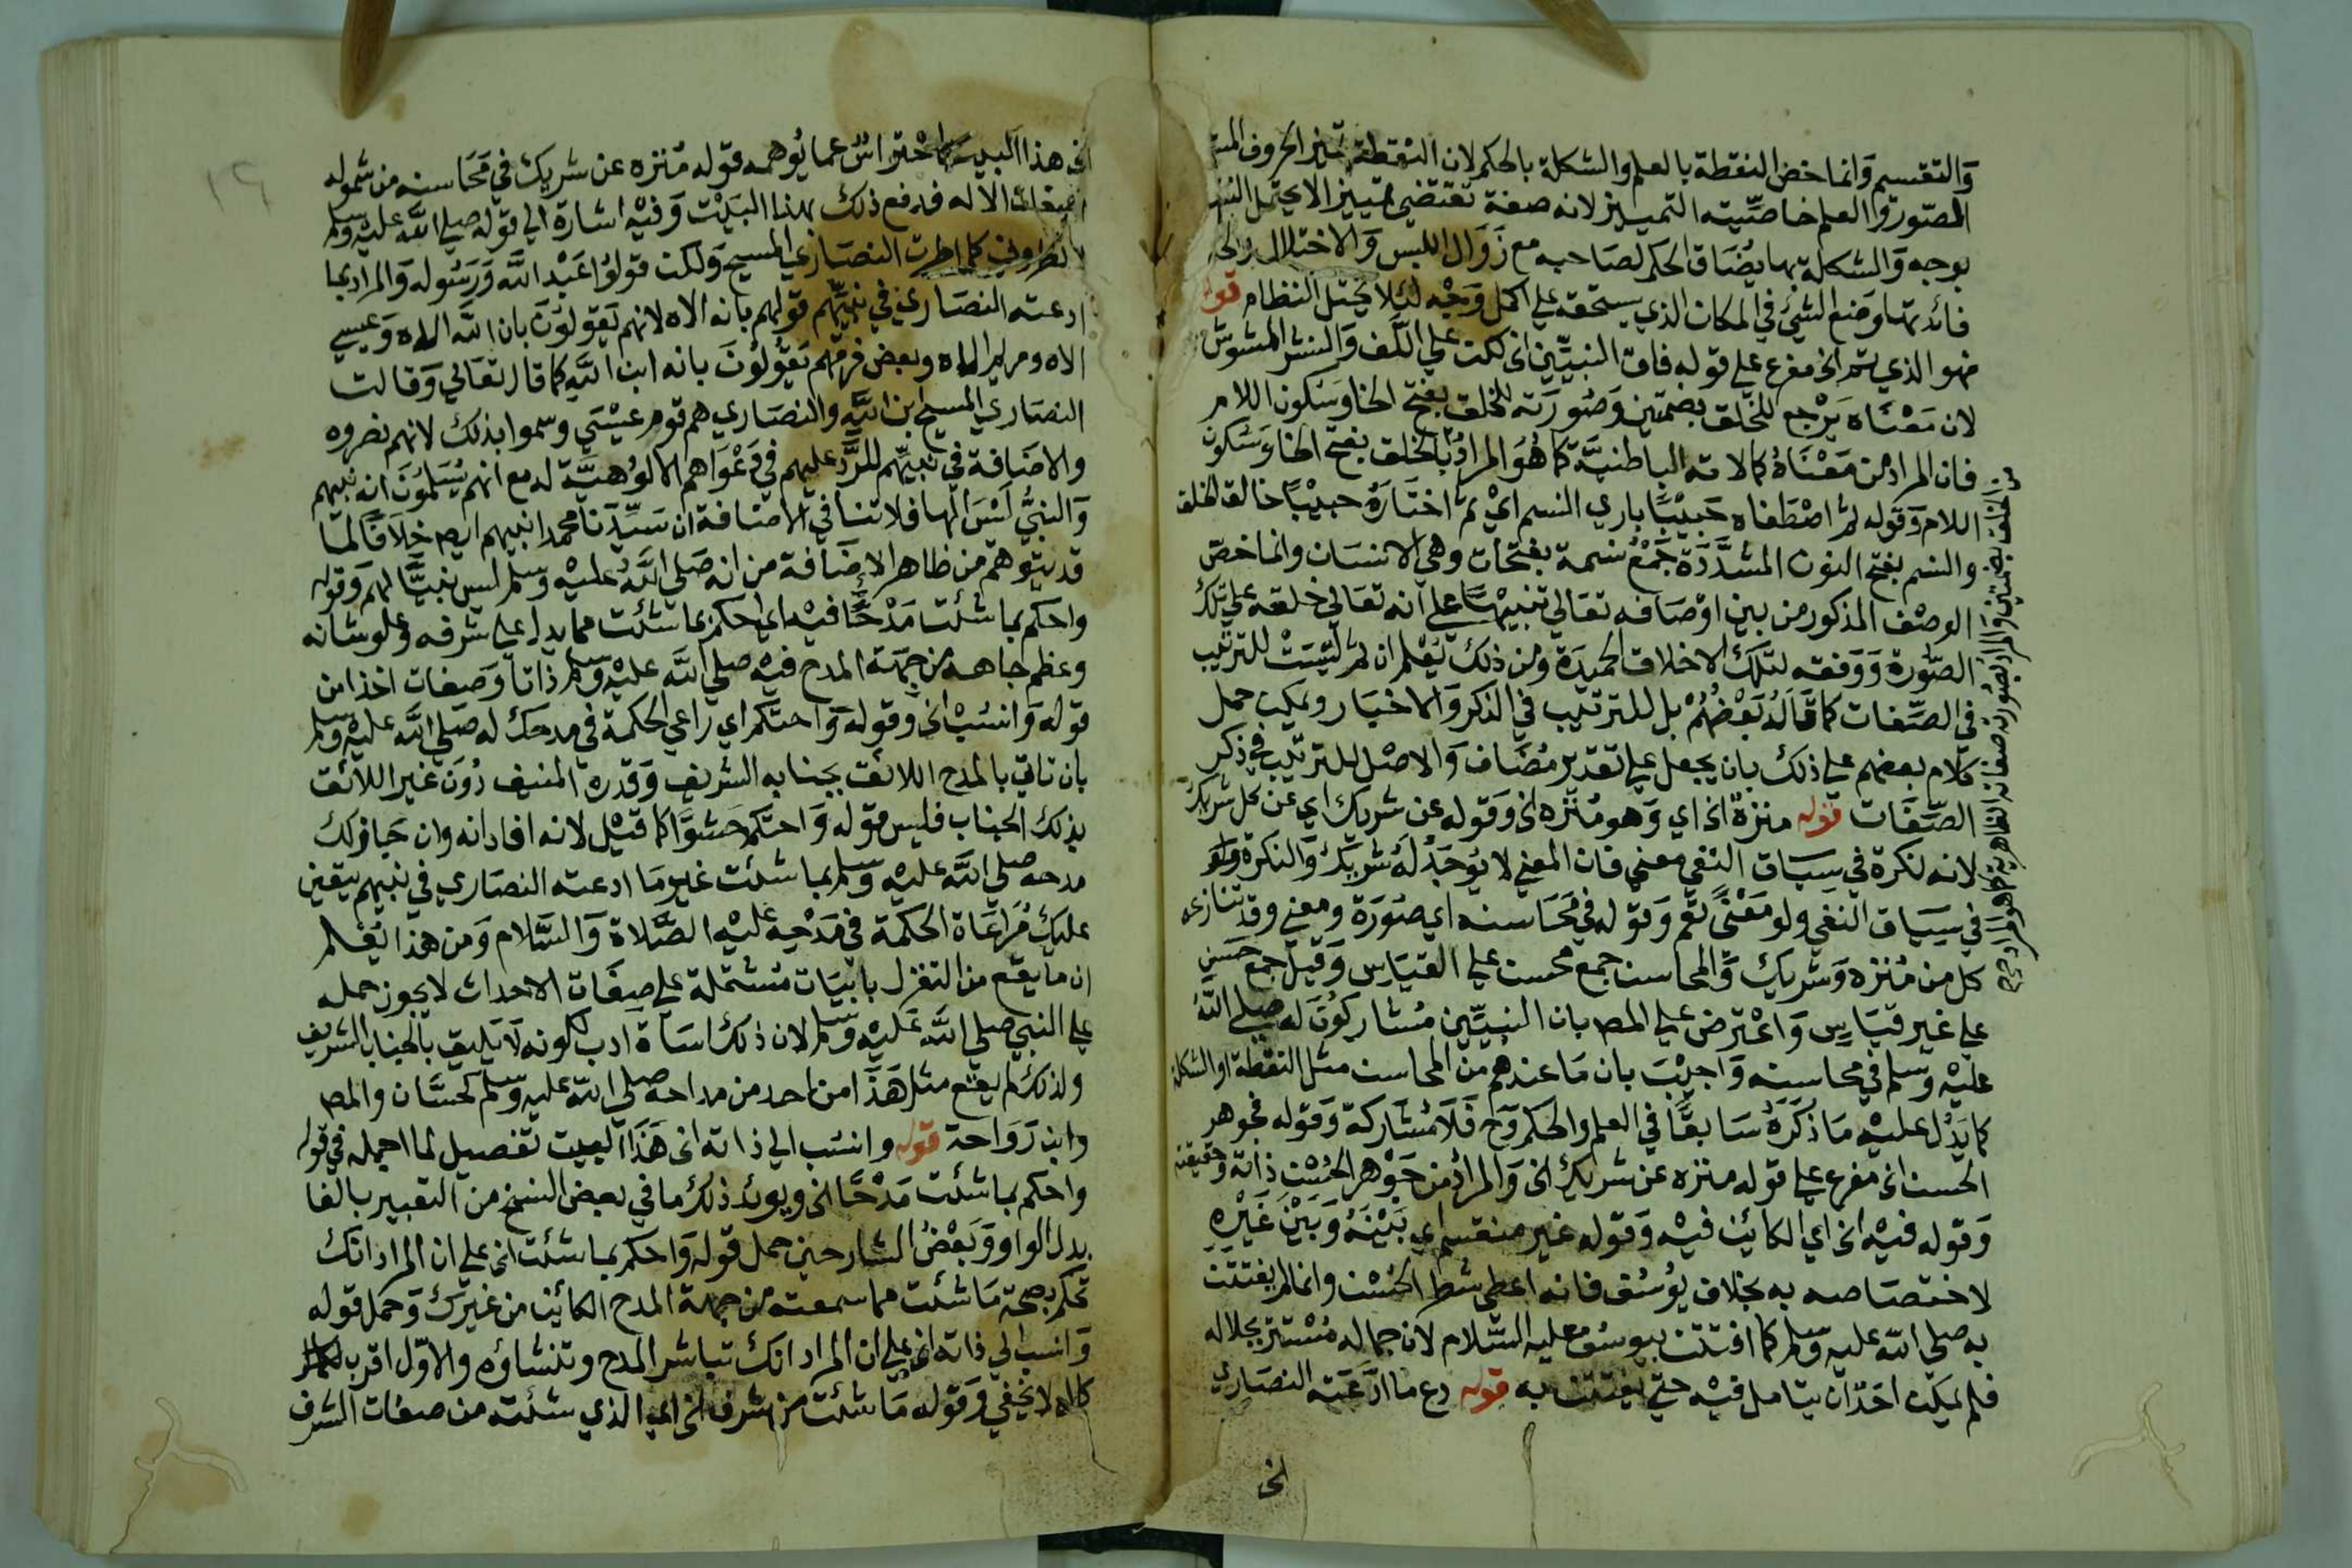 والتقسيم وانما خص النقطة بالعلم والشكلة بالحكم لان النقطة تميز الحروف
المصورة والعلم خاصيته التمييز لانه صفة تقتضي تمييز الا يحتمل
بوجه والشكلة بها يضاف الحكم لصاحبه مع زوال اللبس والاختلال
فائدتها وضع الشيء في المكان الذي يستحقه على اكمل وجه لئلا يختل النظام قوله
فهو الذي تم الخ مفرع على قوله فاق النبيين الخ لكن على اللف والنشر المشوش
لان معناه يرجع للخلق بضمتين وصورته للخلق بفتح الخا وسكون اللام
فان المراد من معناه كمالاته الباطنية كما هو المراد بالخلق بفتح الخا وسكون
اللام وقوله ثم اصطفاه حبيبا باري النسم اي ثم اختاره حبيبا خالق الخلق
والنسم بفتح النون المشددة جمع نسمة بفتحات وهي الانسان وانما خص
الوصف المذكور من بين اوصافه تعالى تنبيها على انه تعالى خلقه على تلك
الصورة ووفقه لتلك الاخلاق الحميدة ومن ذلك يعلم ان ثم ليست للترتيب
في الصفات كما قاله بعضهم بل للترتيب في الذكر والاخبار ويمكن حمل
كلام بعضهم على ذلك بان يجعل على تقدير مضاف والاصل للترتيب في ذكر
الصفات قوله منزه الخ اي وهو منزه الخ وقوله عن شريك اي عن كل شريك
لانه نكرة في سياق النفي معنى فان المعنى لا يوجد له شريك والنكرة
في سياق النفي ولو معنى تعم وقوله في محاسنه اي صورة ومعنى وقد تنازعه
كل من منزه وشريك والمحاسن جمع محسن على القياس وقيل جمع حسن
على غير قياس واعترض على المص بان النبيين مشاركون له صلى الله
عليه وسلم في محاسنه واجيب بان ما عندهم من المحاسن مثل النقطة او الشكلة
كما يدل عليه ما ذكره سابقا في العلم والحكم وح فلا مشاركة وقوله فجوهر
الحسن الخ مفرع على قوله منزه عن شريك الخ والمراد من جوهر الحسن ذاته وحقيقته
وقوله فيه الخ اي الكائن فيه وقوله غير منقسم اي بينه وبين غيره
لاختصاصه به بخلاف يوسف فانه اعطي شطر الحسن وانما لم يفتتن
به صلى الله عليه وسلم كما افتتن بيوسف عليه السلام لان جماله مستتر بجلاله
فلم يمكن احدا ان يتامل فيه حتى يفتتن به قوله دع ما ادعته النصارى
الخ
من الخلق بضمتين والمراد بصورته صفاته الظاهرية كما هو المراد من
١٦
الخ هذا البيت كما احتراس عما يوهمه قوله منزه عن شريك في محاسنه من شموله
صفات الاله فدفع ذلك بهذا البيت وفيه اشارة الى قوله صلى الله عليه وسلم
لا تطروني كما اطرت النصارى المسيح ولكن قولوا عبد الله ورسوله والمراد بما
ادعته النصارى في نبيهم قولهم بانه الاه لانهم يقولون بان الله الاه وعيسى
الاه ومريم الاه وبعض فرقهم يقولون بانه ابن الله كما قال تعالى وقالت
النصارى المسيح ابن الله والنصارى هم قوم عيسى وسموا بذلك لانهم نصروه
والاضافة في نبيهم للرد عليهم في دعواهم الالوهية له مع انهم يسلمون انه نبيهم
والنبي ليس الها فلا تنافي الاضافة ان سيدنا محمدا نبيهم ايضا خلافا لما
قد يتوهم من ظاهر الاضافة من انه صلى الله عليه وسلم ليس نبيا لهم وقوله
واحكم بما شئت مدحا فيه اي احكم بما شئت مما يدل على شرفه وعلو شانه
وعظم جاهه من جهة المدح فيه صلى الله عليه وسلم ذاتا وصفات اخذا من
قوله وانسب الخ وقوله واحتكم اي راعي الحكمة في مدحك له صلى الله عليه وسلم
بان تاتي بالمدح اللائق بجنابه الشريف وقدره المنيف دون غير اللائق
بذلك الجناب فليس قوله واحتكم حشوا كما قيل لانه افاد انه وان جاز لك
مدحه صلى الله عليه وسلم بما شئت غير ما ادعته النصارى في نبيهم يتعين
عليك مراعاة الحكمة في مدحه عليه الصلاة والسلام ومن هذا يعلم
ان ما يقع من التغزل بابيات مشتملة على صفات الاحداث لا يجوز حمله
على النبي صلى الله عليه وسلم لان ذلك اساة ادب لكونه لا يليق بالجناب الشريف
ولذلك لم يقع مثل هذا من احد من مداحه صلى الله عليه وسلم كحسان والمص
وابن رواحة قوله وانسب الى ذاته الخ هذا البيت تفصيل لما اجمله في قوله
واحكم بما شئت مدحا الخ ويويد ذلك ما في بعض النسخ من التعبير بالفا
بدل الواو وبعض الشارحين حمل قوله واحكم بما شئت الخ على ان المراد انك
تحكم بصحة ما شئت مما سمعته من جهة المدح الكائن من غيرك وحمل قوله
وانسب الى ذاته الخ على ان المراد انك تباشر المدح وتنشاؤه والاول اقرب
كما لا يخفى وقوله ما شئت من شرف الخ اي الذي شئته من صفات الشرف